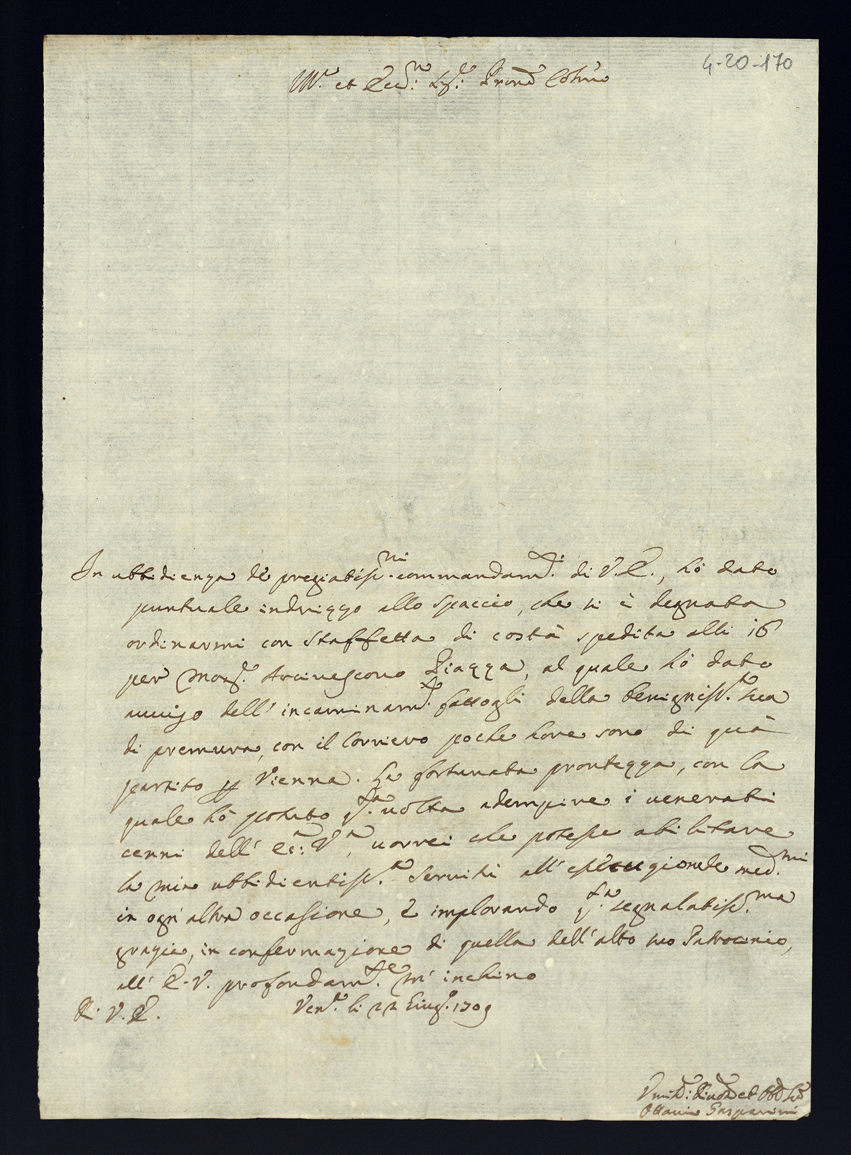 4-20-170
Ill.mo et Ecc.mo Sig.r Sig.r Pron
In ubbidienza de pregiatiss.mi commandam.ti di V.E., hò dato
puntuale indrizzo allo spaccio, che si è degnata
ordinarmi con staffetta di costà spedita alli 16
per Mons.r Arcivescovo Piazza, al quale hò dato
auuiso dell'incaminam.to fattogli della benigniss.a sua
di premura, con il Corriero poche hore sono di quà
partito p Vienna. La fortunata prontezza, con la
quale hò potuto q.ta uolta adempire i uenerati
cenni dell'Ec.a V.a, uorrei che potesse abilitare
la mia ubbidientiss.a Servitù all' med.mi
in ogn'altra occasione, e implorando q.ta segnalatiss.ma
grazie, in confermazione di quella dell'alto suo Patrocinio,
all'E.V. profondam.te m'inchino
Di V.E. Ven.a li 22 Giug.o 1709
Umil.o Diuot.o et Obb.o Ser.e
Ottavio Gasparini